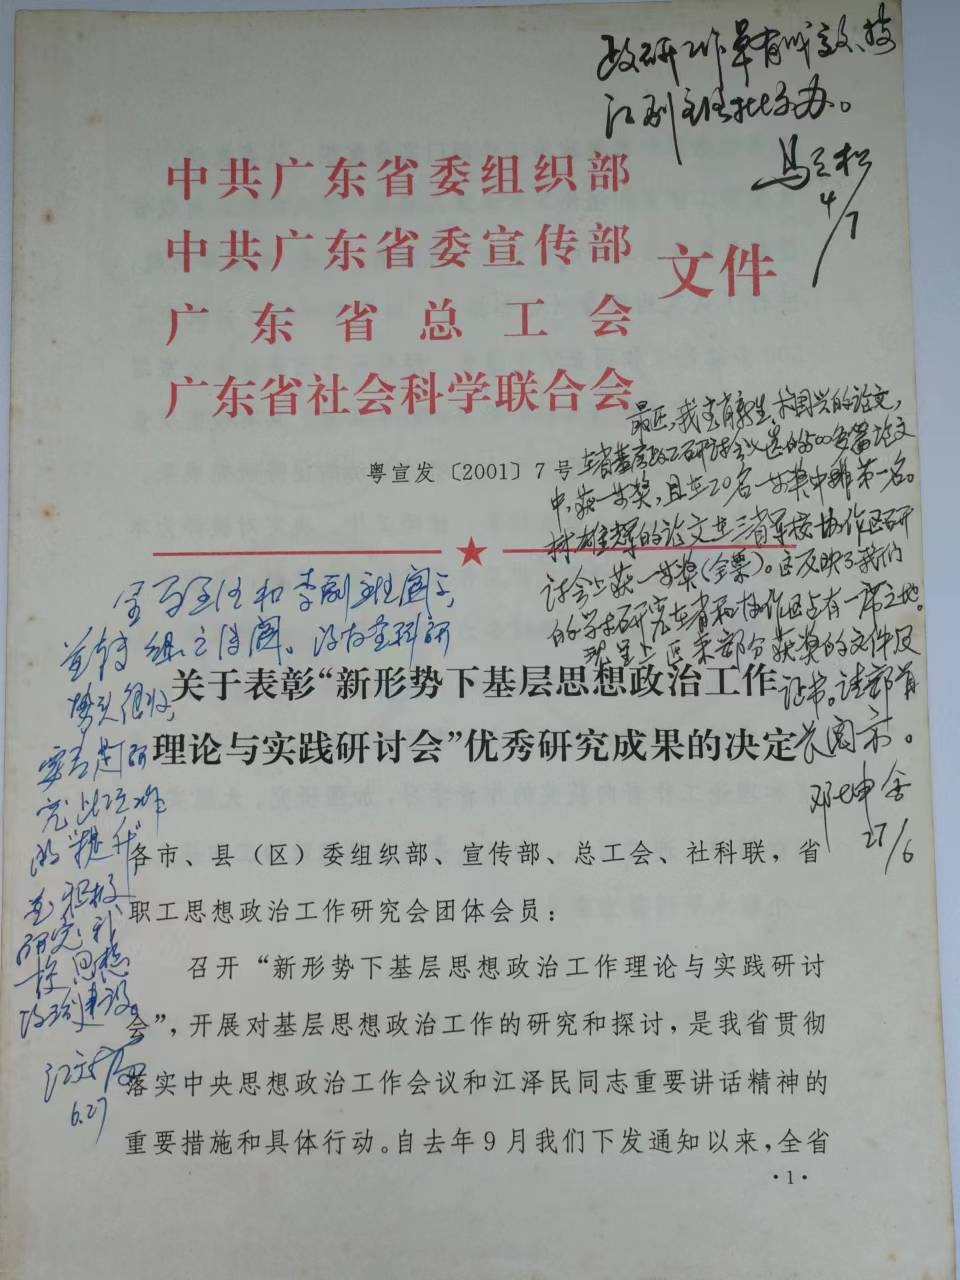 政研工作卓有成效，按
江副主任批示办。
4/7
中共广东省委组织部
中共广东省委宣传部
广东省总工会
广东省社会科学联合会
文件
粤宣发〔2001〕7号
最近，我室肖新生、国兴的论文，
在省党校研讨会入选的500多篇论文
中，获一等奖，且在20名一等奖中排第一名。
林雄辉的论文在三省军校协作区研
讨会上获一等奖(全票)。这反映了我们
的学术研究在省和协作区占有一席之地。
现呈上区来部分获奖的文件及
证书。请部首
长阅示。
27/6
呈马主任和李副主任阅示，
政治室科研
势头很好，
研
究
的“提升”
积极
研究
思想
政治建设。
6.27
关于表彰“新形势下基层思想政治工作
理论与实践研讨会”优秀研究成果的决定
各市、县（区）委组织部、宣传部、总工会、社科联，省
职工思想政治工作研究会团体会员：
召开“新形势下基层思想政治工作理论与实践研讨
会”，开展对基层思想政治工作的研究和探讨，是我省贯彻
落实中央思想政治工作会议和江泽民同志重要讲话精神的
重要措施和具体行动。自去年9月我们下发通知以来，全省
·1·